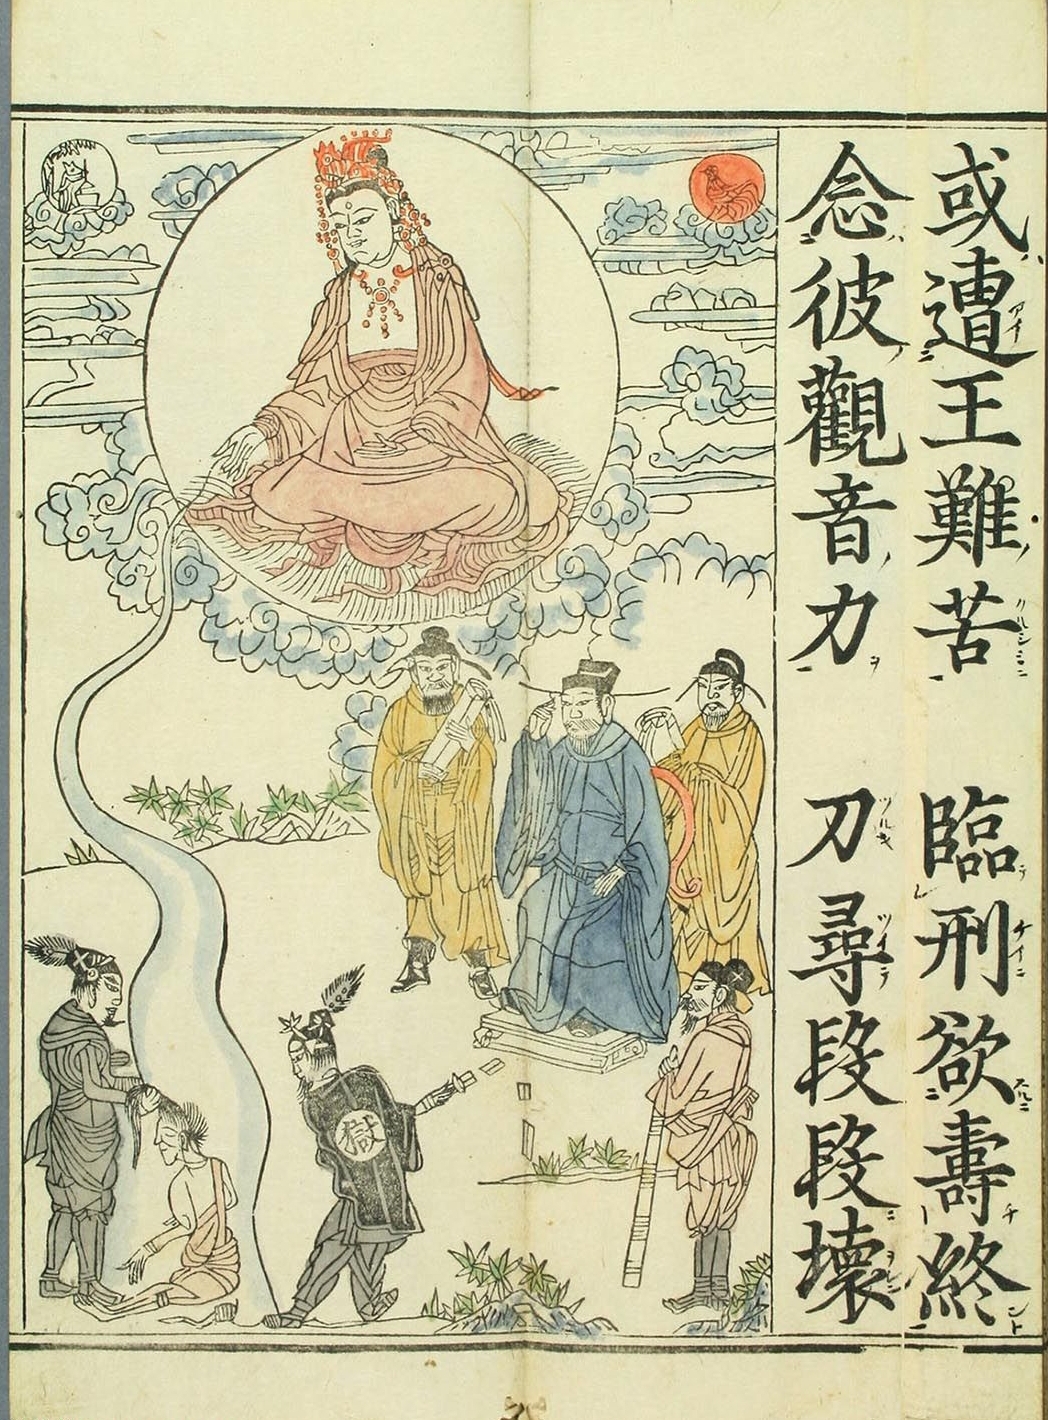 或遭王難苦 臨刑欲壽終
念彼觀音力 刀尋段段壞
獄